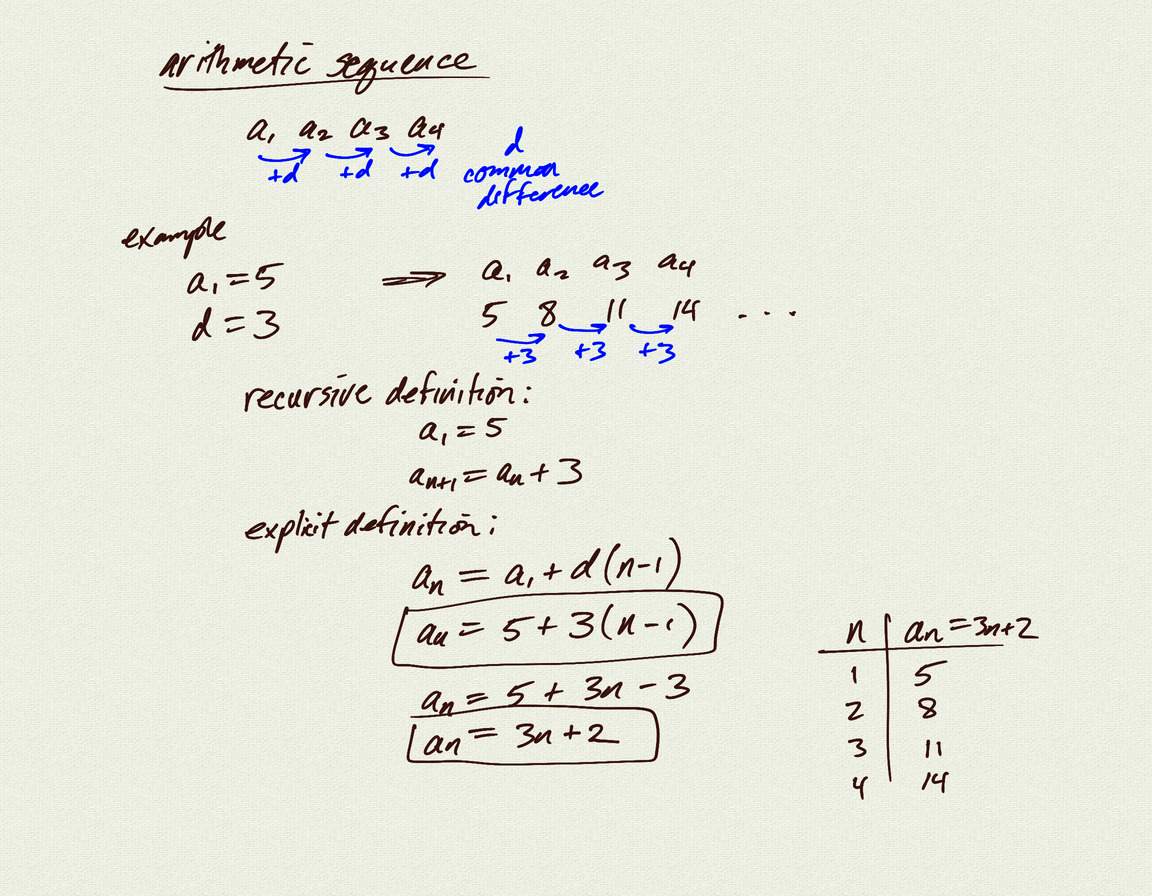 arithmetic sequence
a₁ a₂ a₃ a₄
+d +d +d
d
common
difference
example
a₁ = 5
d = 3
⟹
a₁ a₂ a₃ a₄
5 8 11 14 . . .
+3 +3 +3
recursive definition:
a₁ = 5
aₙ₊₁ = aₙ + 3
explicit definition:
aₙ = a₁ + d(n-1)
aₙ = 5 + 3(n-1)
aₙ = 5 + 3n - 3
aₙ = 3n + 2
n | aₙ = 3n+2
1 | 5
2 | 8
3 | 11
4 | 14